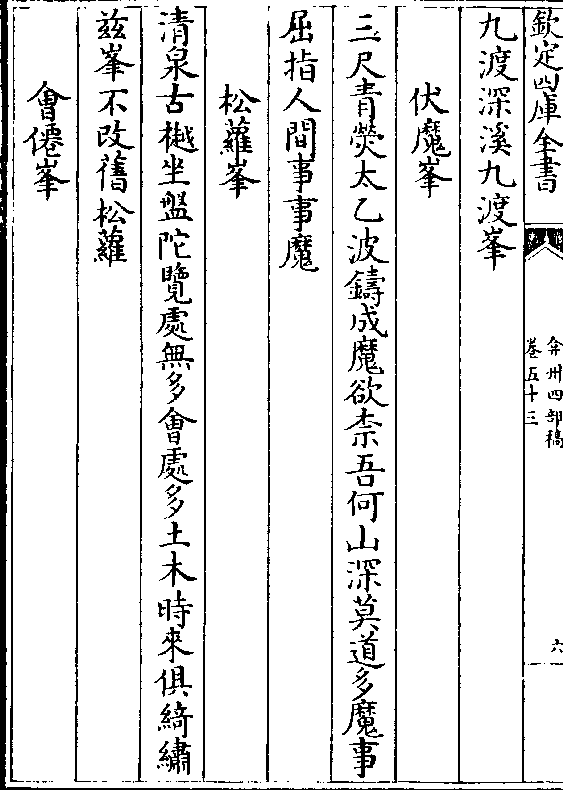 欽定四庫全書
弇州四部稿
卷五十三
六
九渡深溪九渡峯
伏魔峯
三尺青熒太乙波鑄成魔欲柰吾何山深莫道多魔事
屈指人間事事魔
松蘿峯
清泉古樾坐盤陀覽處無多會處多土木時來俱綺繡
兹峯不改舊松蘿
會僊峯